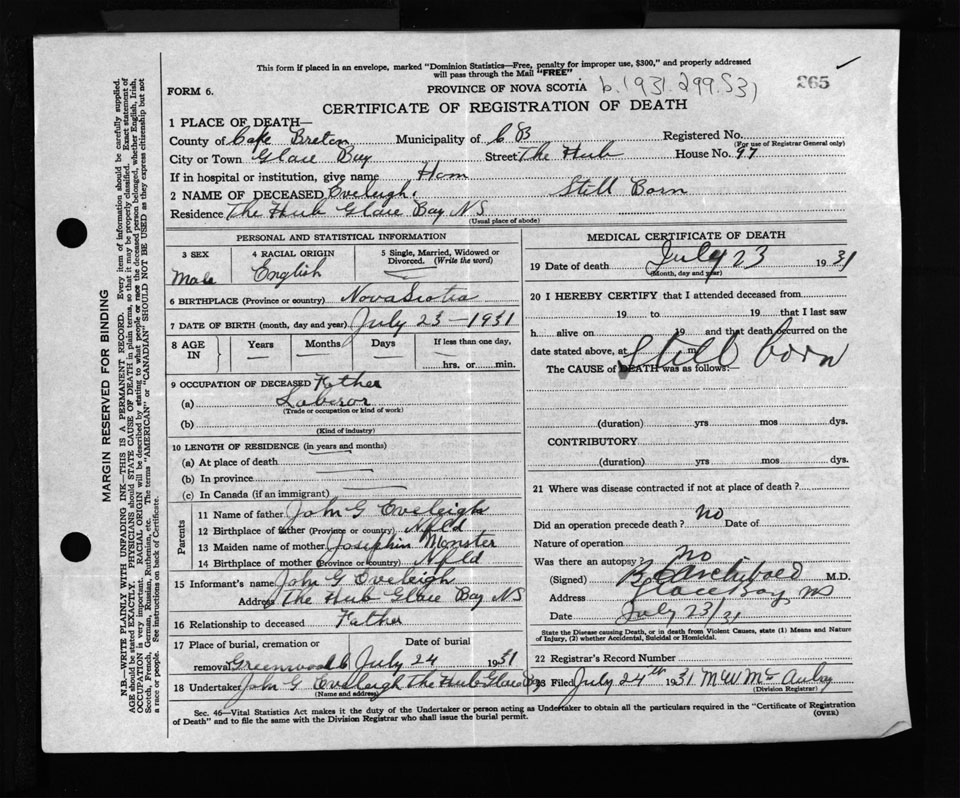 This form if placed in an envelope, marked "Dominion Statistics—Free, penalty for improper use, $300," and properly addressed
will pass through the Mail "FREE"
FORM 6.
PROVINCE OF NOVA SCOTIA b.1931.299.531
265
CERTIFICATE OF REGISTRATION OF DEATH
1 PLACE OF DEATH—
County of Cape Breton Municipality of C B Registered No.
(For use of Registrar General only)
City or Town Glace Bay Street The Hub House No. 97
If in hospital or institution, give name Hom
2 NAME OF DECEASED Oveleigh. Still Born
Residence The Hub Glace Bay NS
(Usual place of abode)
PERSONAL AND STATISTICAL INFORMATION
3 SEX 4 RACIAL ORIGIN 5 Single, Married, Widowed or
Divorced. (Write the word)
Male English
6 BIRTHPLACE (Province or country) Nova Scotia
7 DATE OF BIRTH (month, day and year) July 23-1931
8 AGE IN Years Months Days If less than one day,
hrs. or min.
9 OCCUPATION OF DECEASED Father
(a) Laberor
(Trade or occupation or kind of work)
(b)
(Kind of industry)
10 LENGTH OF RESIDENCE (in years and months)
(a) At place of death
(b) In province
(c) In Canada (if an immigrant)
Parents
11 Name of father John G Oveleigh
12 Birthplace of father (Province or country) Nfld
13 Maiden name of mother Josephin Monster
14 Birthplace of mother (Province or country) Nfld
15 Informant's name John G Oveleigh
Address The Hub Glace Bay NS
16 Relationship to deceased Father
17 Place of burial, cremation or Date of burial
removal Greenwood July 24 1931
18 Undertaker John G Oveleigh The Hub Glace Bay
(Name and address)
MEDICAL CERTIFICATE OF DEATH
19 Date of death July 23 1931
(Month, day and year)
20 I HEREBY CERTIFY that I attended deceased from
19 to 19 that I last saw
h alive on 19 and that death occurred on
date stated above, at m
Still born
The CAUSE of DEATH was as follows:—
(duration) yrs mos dys.
CONTRIBUTORY
(duration) yrs mos dys.
21 Where was disease contracted if not at place of death?
Did an operation precede death? No Date of
Nature of operation
Was there an autopsy? No
(Signed) M.D.
Address Glace Bay, NS
Date July 23/31
State the Disease causing Death, or in death from Violent Causes, state (1) Means and Nature
of Injury, (2) whether Accidental, Suicidal or Homicidal.
22 Registrar's Record Number
23 Filed July 24th 1931
(Division Registrar)
Sec. 46—Vital Statistics Act makes it the duty of the Undertaker or person acting as Undertaker to obtain all the particulars required in the "Certificate of Registration
of Death" and to file the same with the Division Registrar who shall issue the burial permit.
(OVER)
MARGIN RESERVED FOR BINDING
N.B.—WRITE PLAINLY WITH UNFADING INK—THIS IS A PERMANENT RECORD. Every item of information should be carefully supplied.
AGE should be stated EXACTLY. PHYSICIANS should STATE CAUSE OF DEATH in plain terms, so that it may be properly classified. Exact statement of
OCCUPATION is very important. RACIAL ORIGIN will be described by stating to what people or race the deceased person belonged, whether English, Irish,
Scotch, French, German, Russian, Ruthenian, etc. The terms "AMERICAN" or "CANADIAN" SHOULD NOT BE USED as they express citizenship but not
a race or people. See instructions on back of Certificate.